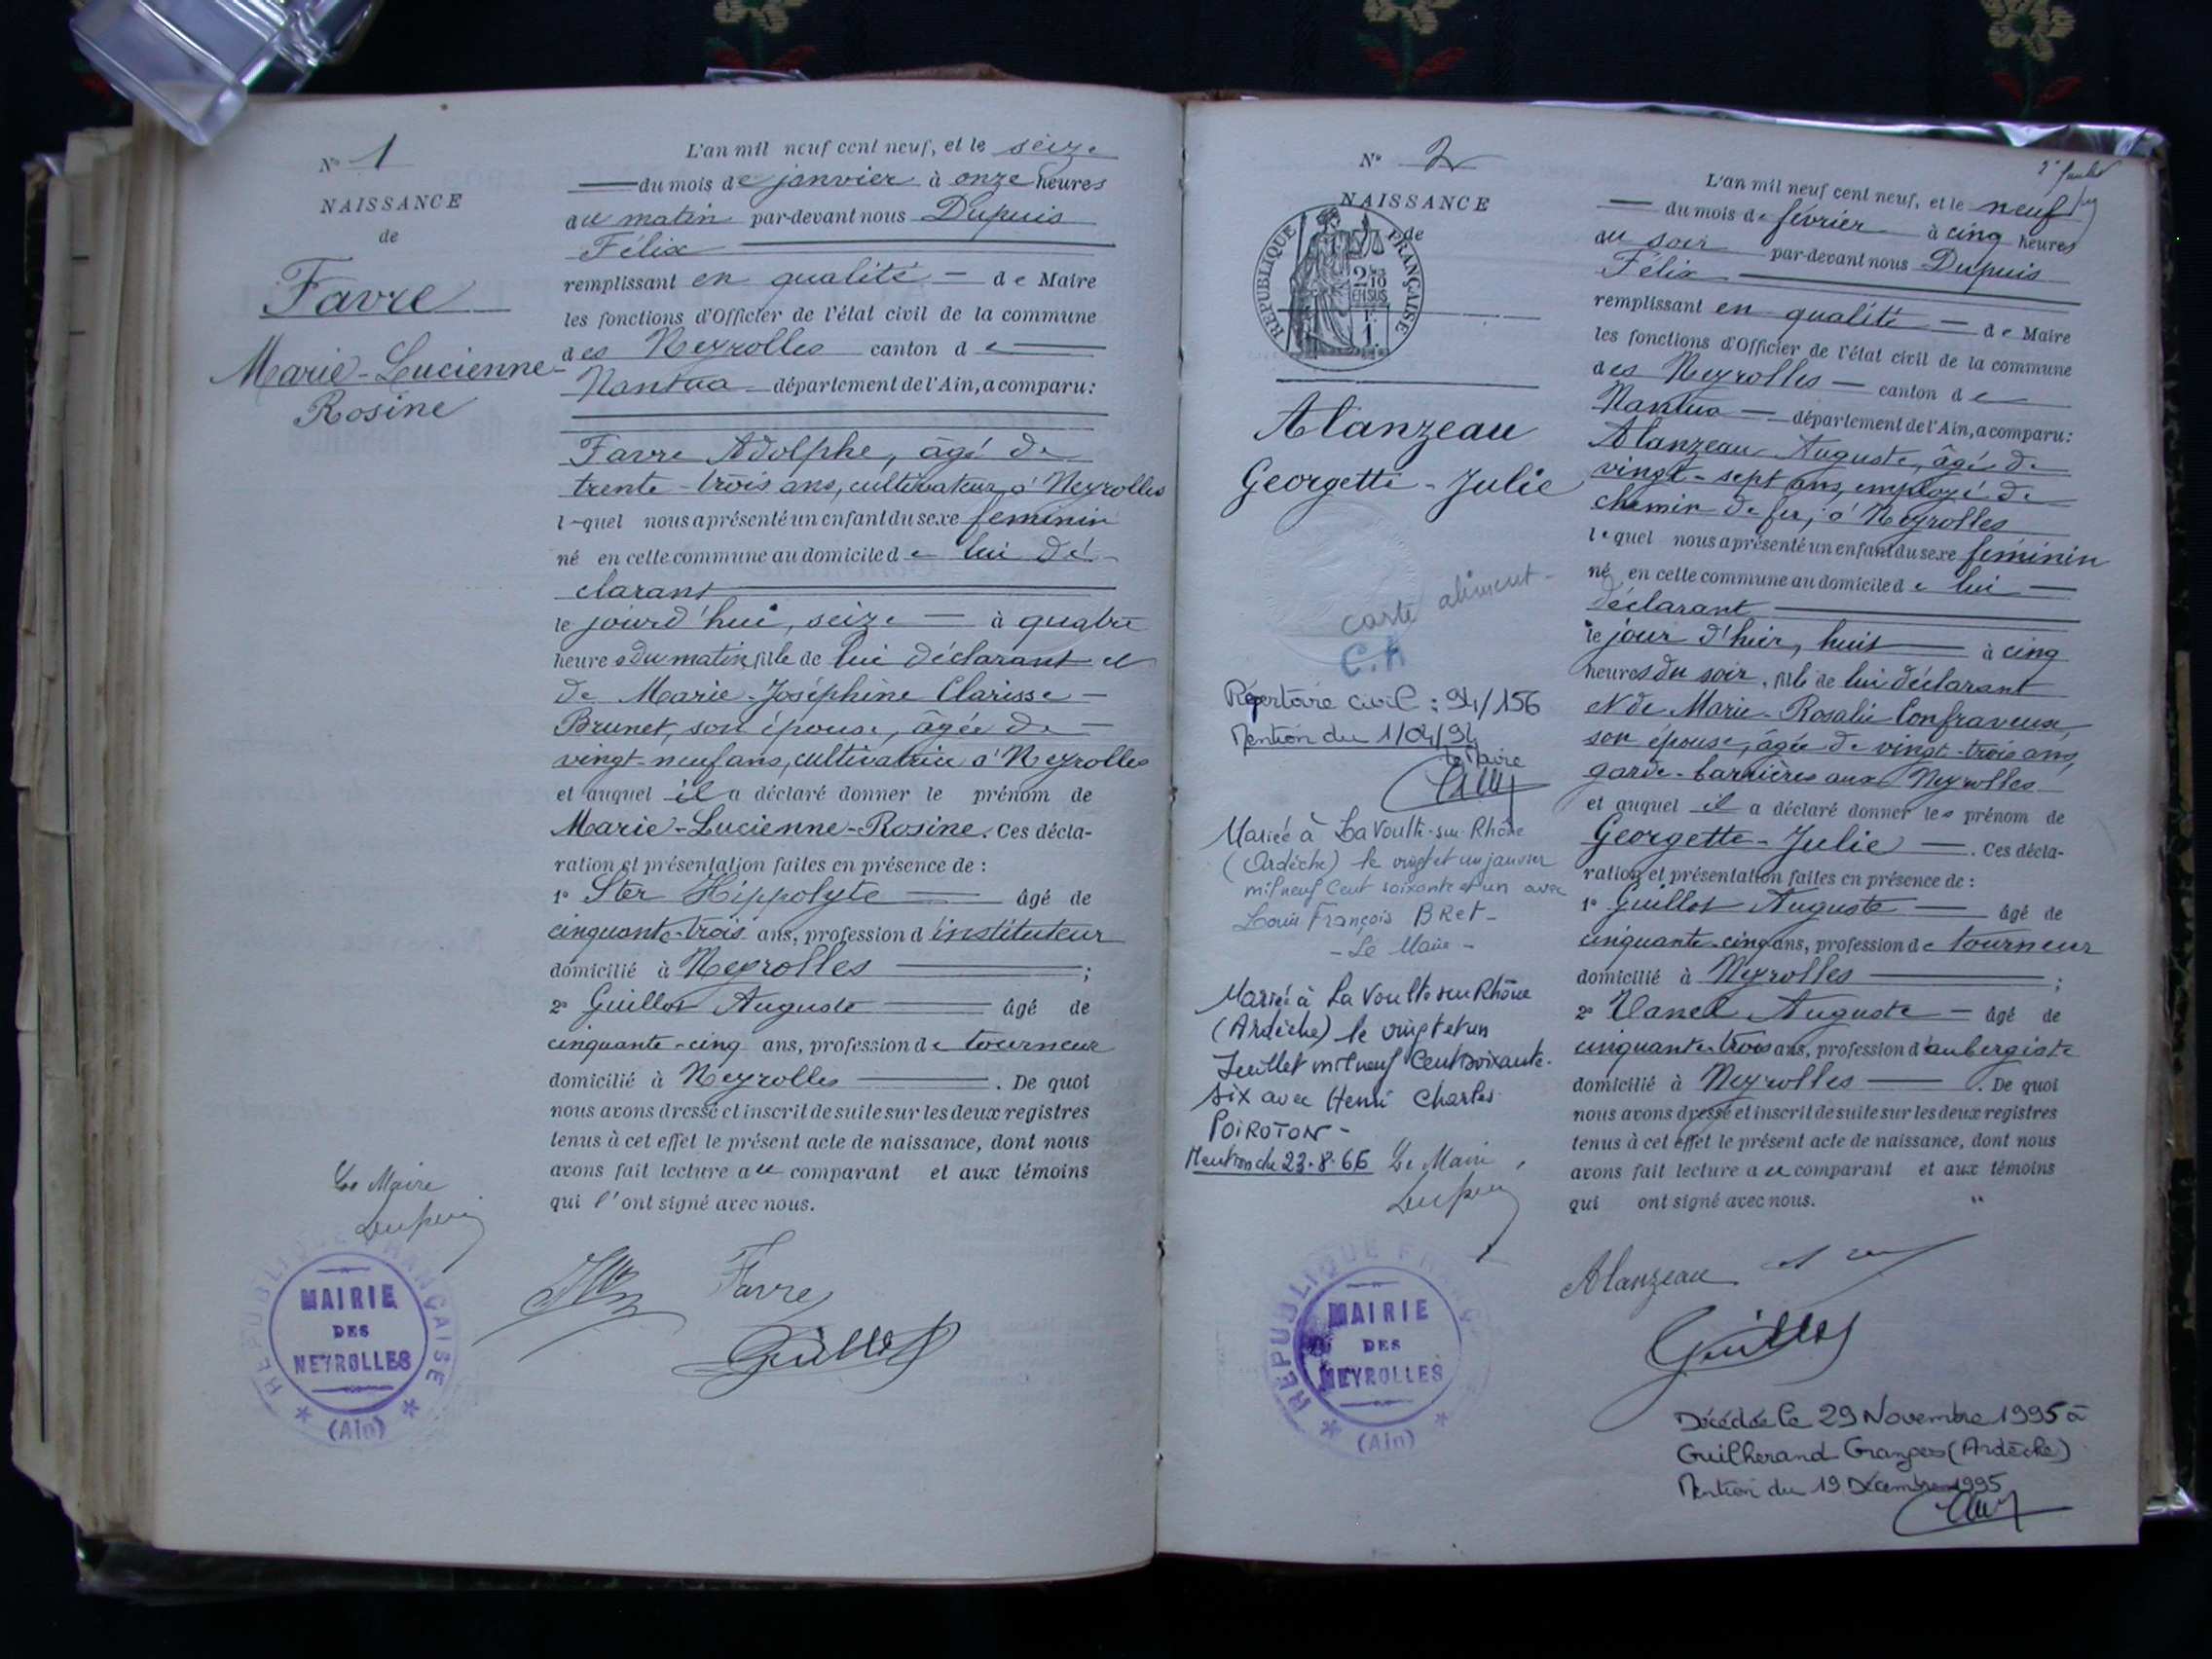 N° 1
NAISSANCE
de
Favre
Marie-Lucienne-
Rosine
L'an mil neuf cent neuf, et le seize
du mois de janvier à onze heures
du matin par-devant nous Dupuis
Félix
remplissant en qualité de Maire
les fonctions d'Officier de l'état civil de la commune
des Neyrolles canton de
Nantua département de l'Ain, a comparu:
Favre Adolphe, âgé de
trente-trois ans, cultivateur à Neyrolles
lequel nous a présenté un enfant du sexe féminin
né en cette commune au domicile de lui dé-
clarant
le jourd'hui, seize à quatre
heures du matin, fille de lui déclarant et
de Marie-Joséphine Clarisse
Brunet, son épouse, âgée de
vingt-neuf ans, cultivatrice à Neyrolles
et auquel il a déclaré donner le prénom de
Marie-Lucienne-Rosine. Ces décla-
ration et présentation faites en présence de :
1° Ster Hippolyte âgé de
cinquante-trois ans, profession d'instituteur
domicilié à Neyrolles ;
2° Guillot Auguste âgé de
cinquante-cinq ans, profession de tourneur
domicilié à Neyrolles . De quoi
nous avons dressé et inscrit de suite sur les deux registres
tenus à cet effet le présent acte de naissance, dont nous
avons fait lecture au comparant et aux témoins
qui l'ont signé avec nous.
Le Maire
Dupuis
Favre
Guillot
REPUBLIQUE FRANÇAISE
MAIRIE
DES
NEYROLLES
(Ain)
N° 2
NAISSANCE
de
REPUBLIQUE FRANÇAISE
2/10
EN SUS
1
Alanzeau
Georgette-Julie
carte aliment-
C.A
Répertoire civil : 94/156
Mention du 1/04/94
Le Maire
Mariée à La Voulte-sur-Rhône
(Ardèche) le vingt et un janvier
mil neuf cent soixante et un avec
Louis François BRET-
- Le Maire -
Mariée à La Voulte sur Rhône
(Ardèche) le vingt et un
Juillet mil neuf cent soixante-
six avec Henri Charles
POIROTON -
Mention du 23-8-66 Le Maire
Dupuis
REPUBLIQUE FRANÇAISE
MAIRIE
DES
NEYROLLES
(Ain)
L'an mil neuf cent neuf, et le neuf
du mois de février à cinq heures
du soir par-devant nous Dupuis
Félix
remplissant en qualité de Maire
les fonctions d'Officier de l'état civil de la commune
des Neyrolles canton de
Nantua département de l'Ain, a comparu:
Alanzeau Auguste, âgé de
vingt-sept ans, employé de
chemin de fer, à Neyrolles
lequel nous a présenté un enfant du sexe féminin
né en cette commune au domicile de lui
déclarant
le jour d'hier, huit à cinq
heures du soir, fille de lui déclarant
et de Marie-Rosalie Confraveux,
son épouse, âgée de vingt-trois ans,
garde-barrières aux Neyrolles
et auquel il a déclaré donner les prénom de
Georgette-Julie . Ces décla-
ration et présentation faites en présence de :
1° Guillot Auguste âgé de
cinquante-cinq ans, profession de tourneur
domicilié à Neyrolles ;
2° Vanel Auguste âgé de
cinquante-trois ans, profession d'aubergiste
domicilié à Neyrolles . De quoi
nous avons dressé et inscrit de suite sur les deux registres
tenus à cet effet le présent acte de naissance, dont nous
avons fait lecture au comparant et aux témoins
qui ont signé avec nous.
Alanzeau
Guillot
Décédée le 29 Novembre 1995 à
Guilherand Granges (Ardèche)
Mention du 19 Décembre 1995